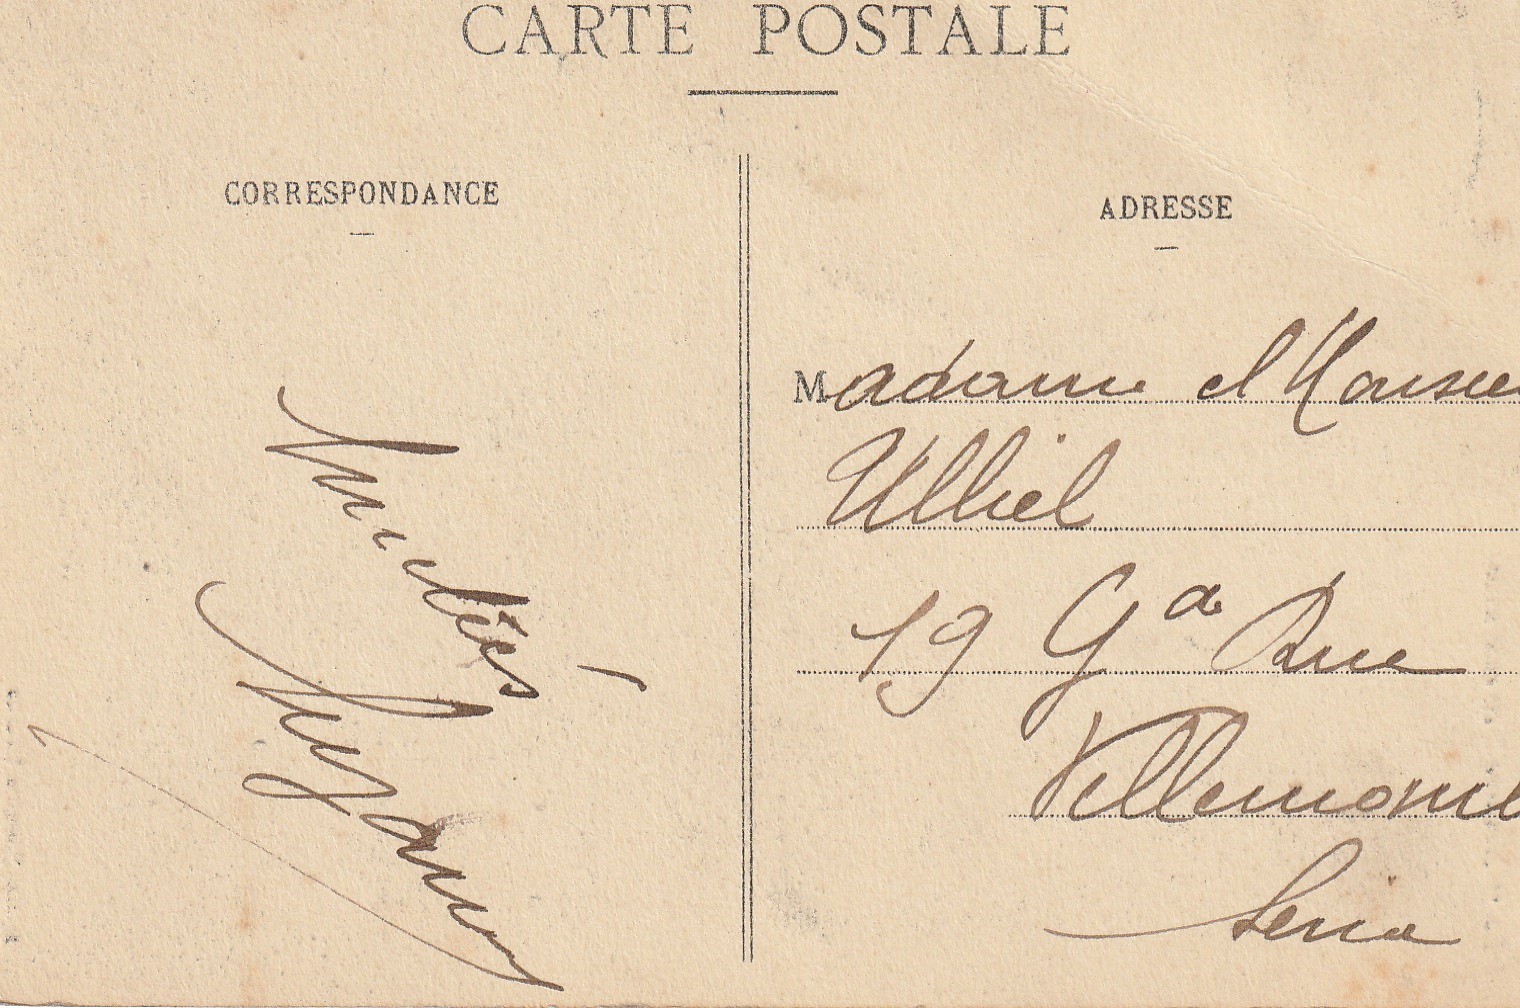 CARTE POSTALE
CORRESPONDANCE
Amitiés
Suzanne
ADRESSE
Madame et Monsieu
Ulliel
19 Gde Rue
Villemomble
Seine